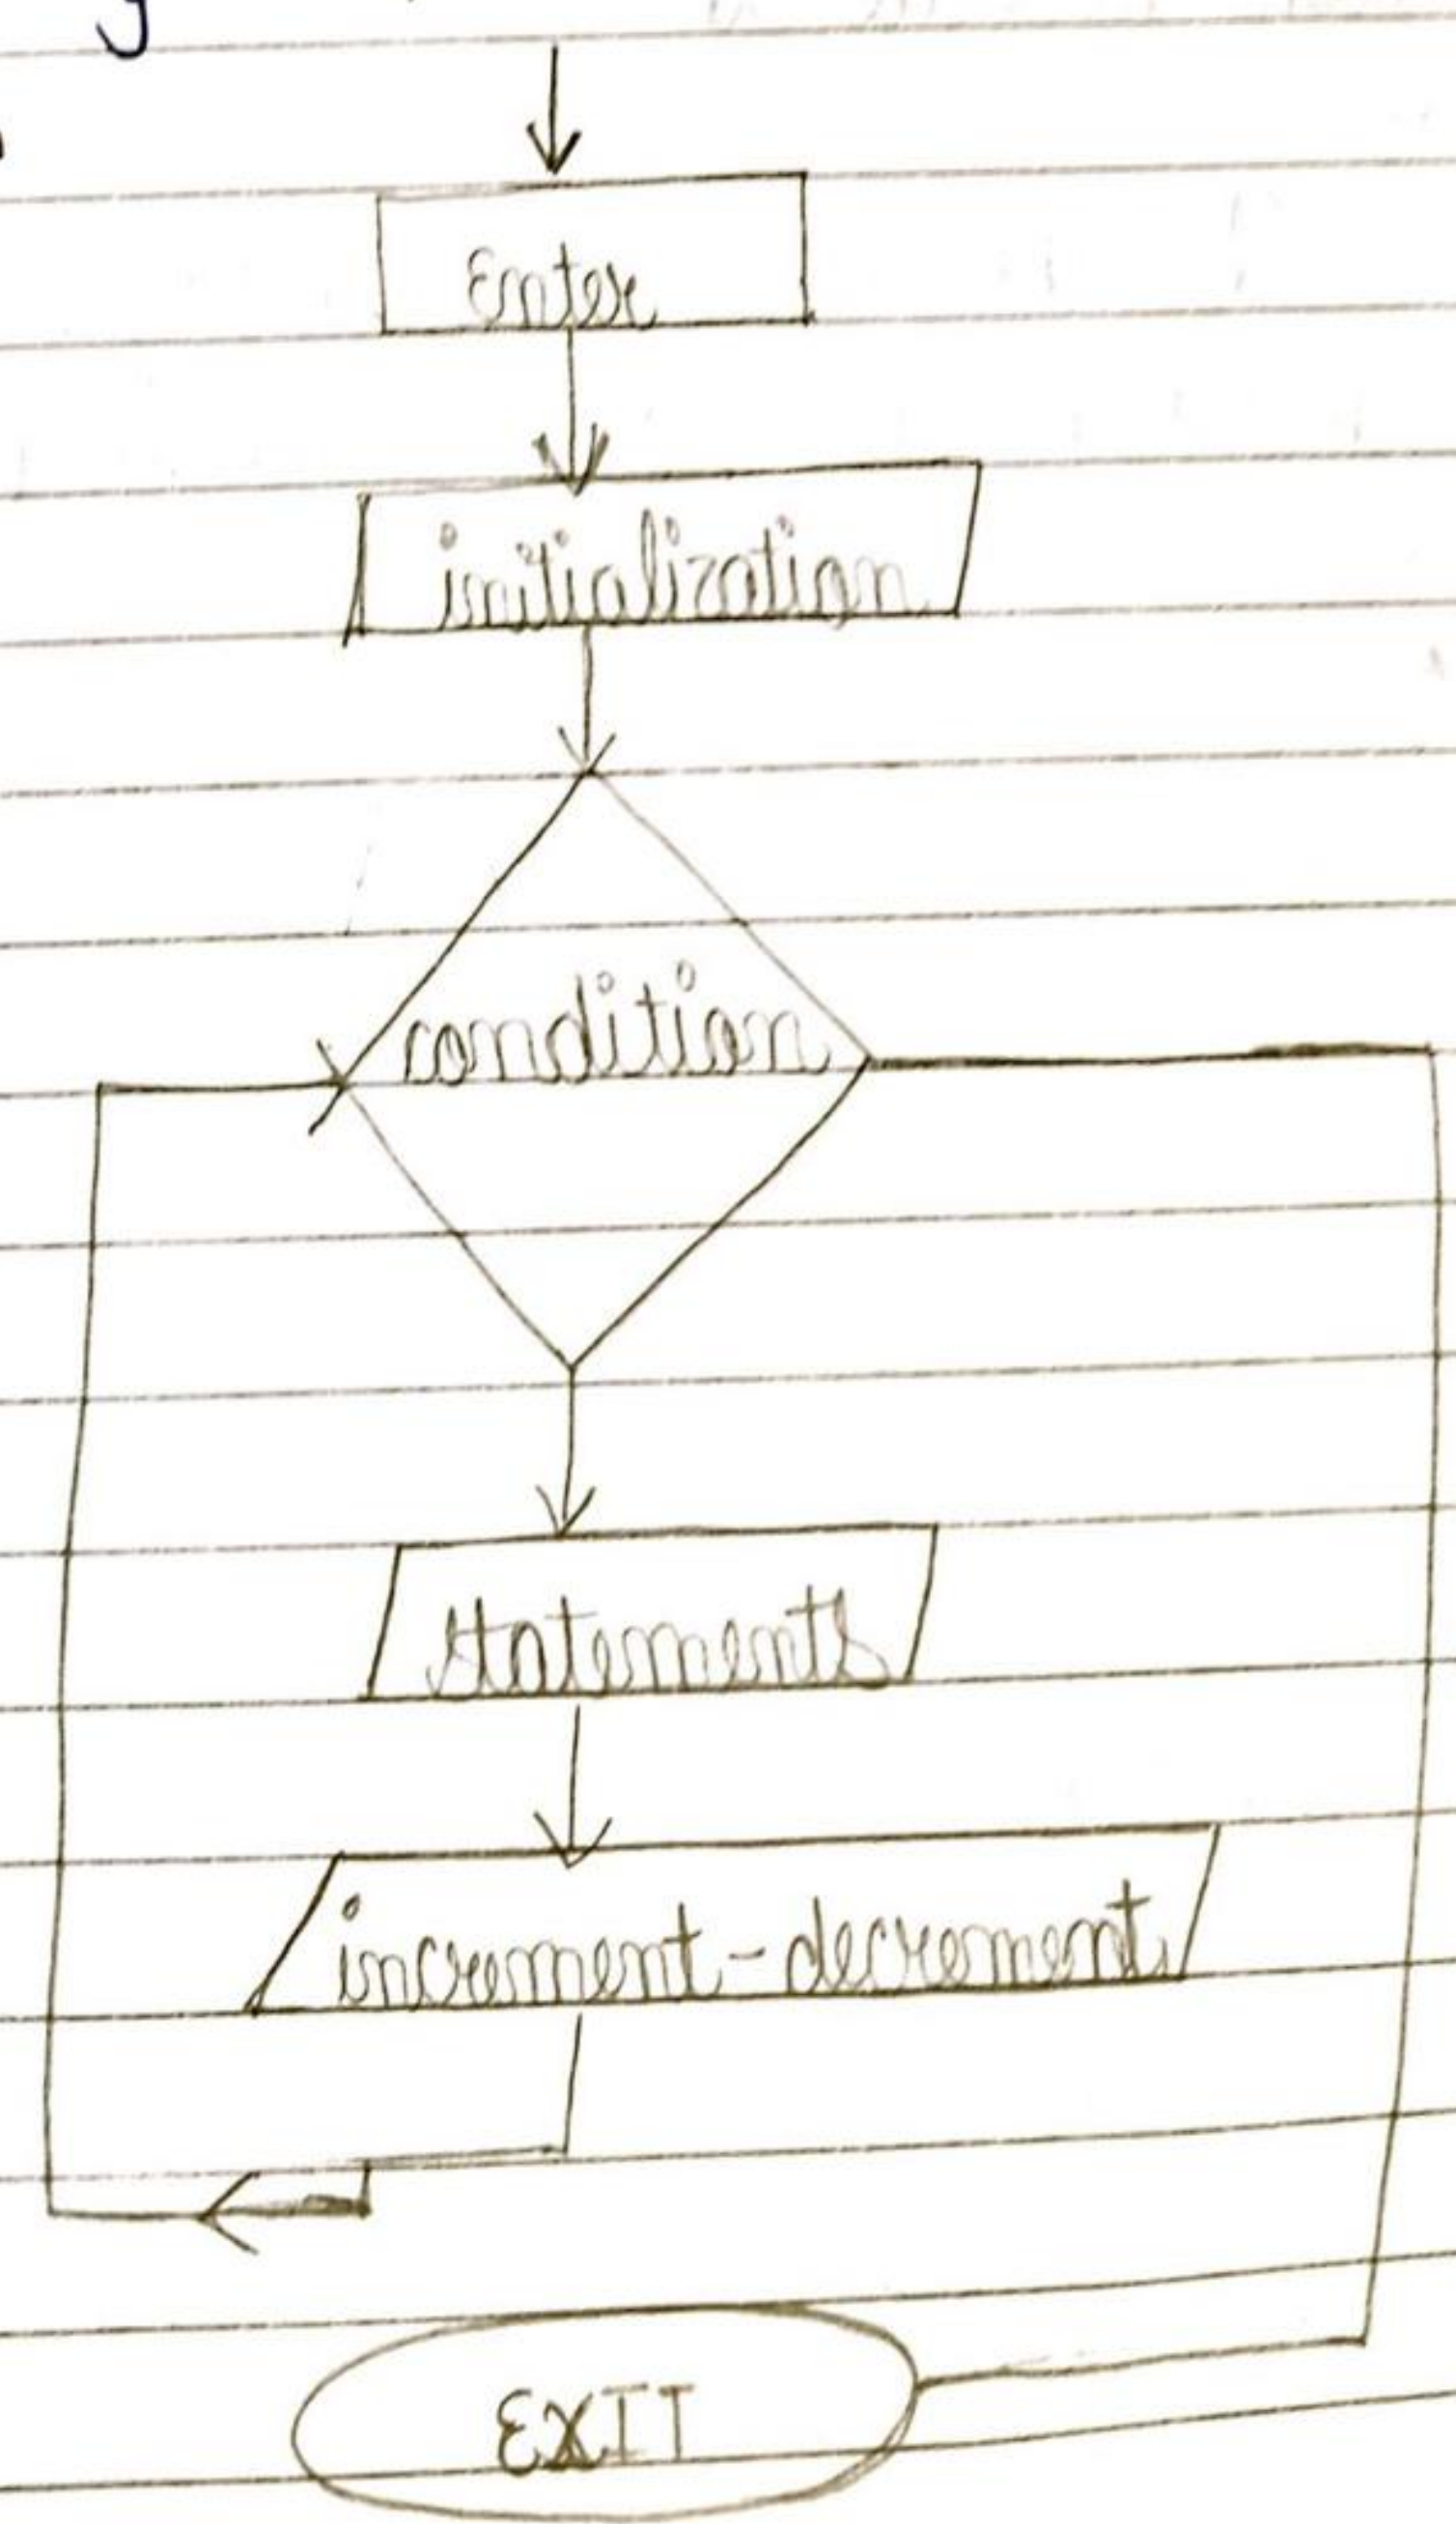 Enter
initialization
condition
statements
increment-decrement
EXIT